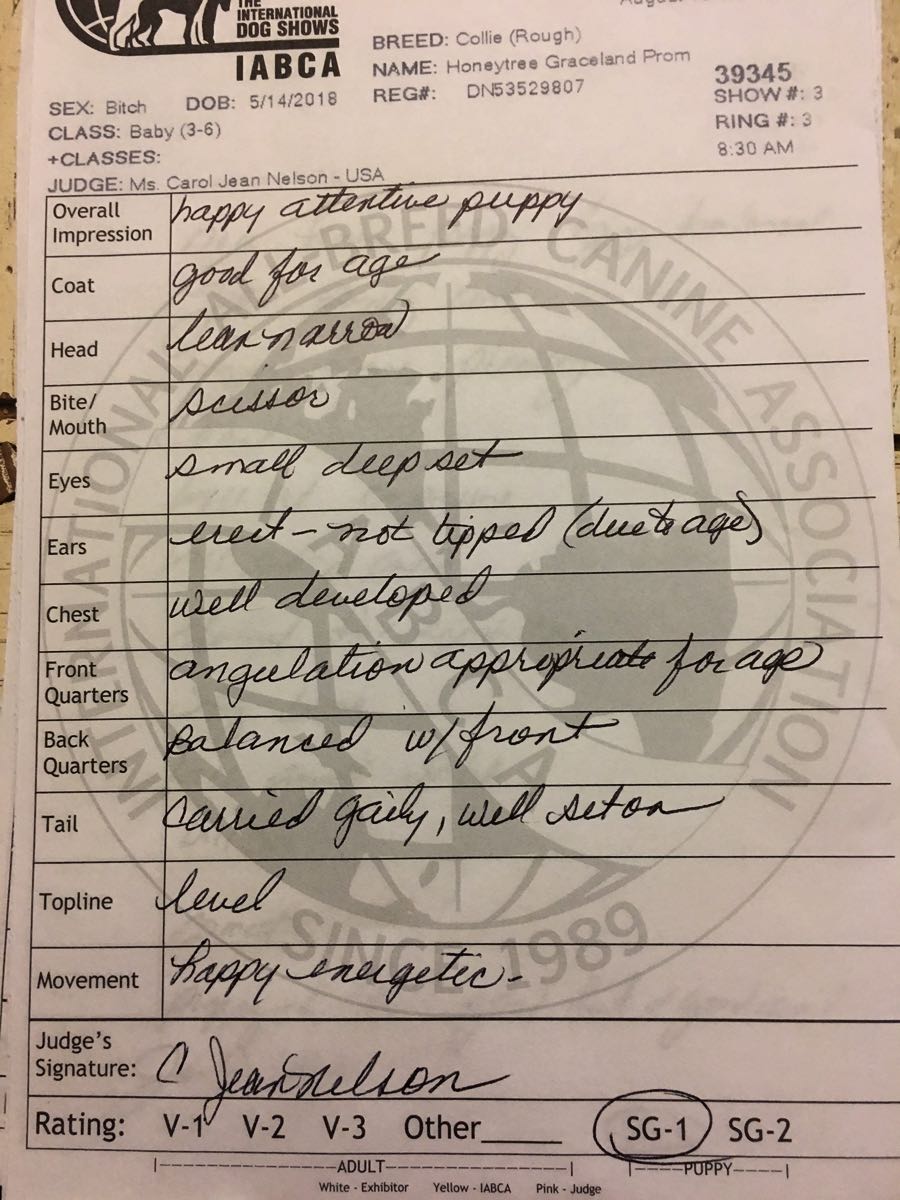 THE
INTERNATIONAL
DOG SHOWS
IABCA
BREED: Collie (Rough)
NAME: Honeytree Graceland Prom
REG#: DN53529807
39345
SHOW #: 3
RING #: 3
8:30 AM
SEX: Bitch DOB: 5/14/2018
CLASS: Baby (3-6)
+CLASSES:
JUDGE: Ms. Carol Jean Nelson - USA
Overall Impression happy attentive puppy
Coat good for age
Head lean narrow
Bite/ Mouth scissor
Eyes small deep set
Ears erect - not tipped (due to age)
Chest well developed
Front Quarters angulation appropriate for age
Back Quarters Balanced w/ front
Tail Carried gaily, well set on
Topline level
Movement happy energetic -
Judge's Signature: C Jean Nelson
Rating: V-1 V-2 V-3 Other______ SG-1 SG-2
ADULT PUPPY
White - Exhibitor Yellow - IABCA Pink - Judge
INTERNATIONAL ALL BREED CANINE ASSOCIATION
IABCA
SINCE 1989